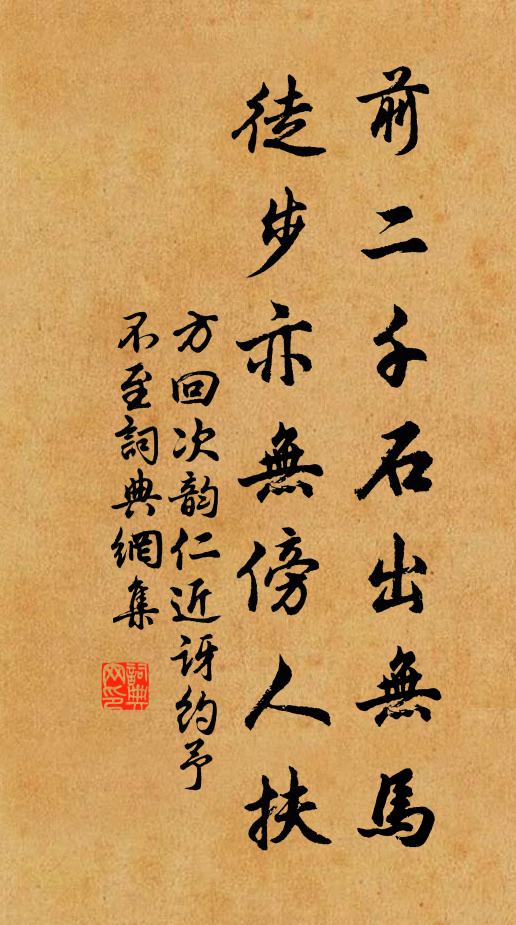 前二千石出無馬
徒步亦無傍人扶
方回次韵仁近讶約予
不至詞典網集
詞典网印